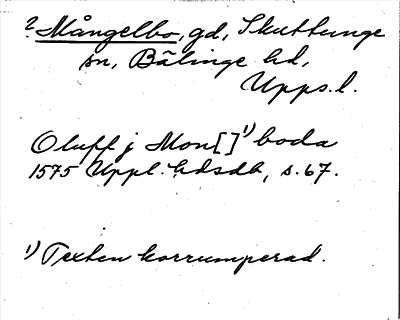 ? Mångelbo, gd, Skuttunge
sn, Bälinge hd,
Upps.l.
Oluff j Mon[]¹⁾boda
1575 Uppl. hdsdb, s. 67.
¹⁾ Texten korrumperad.